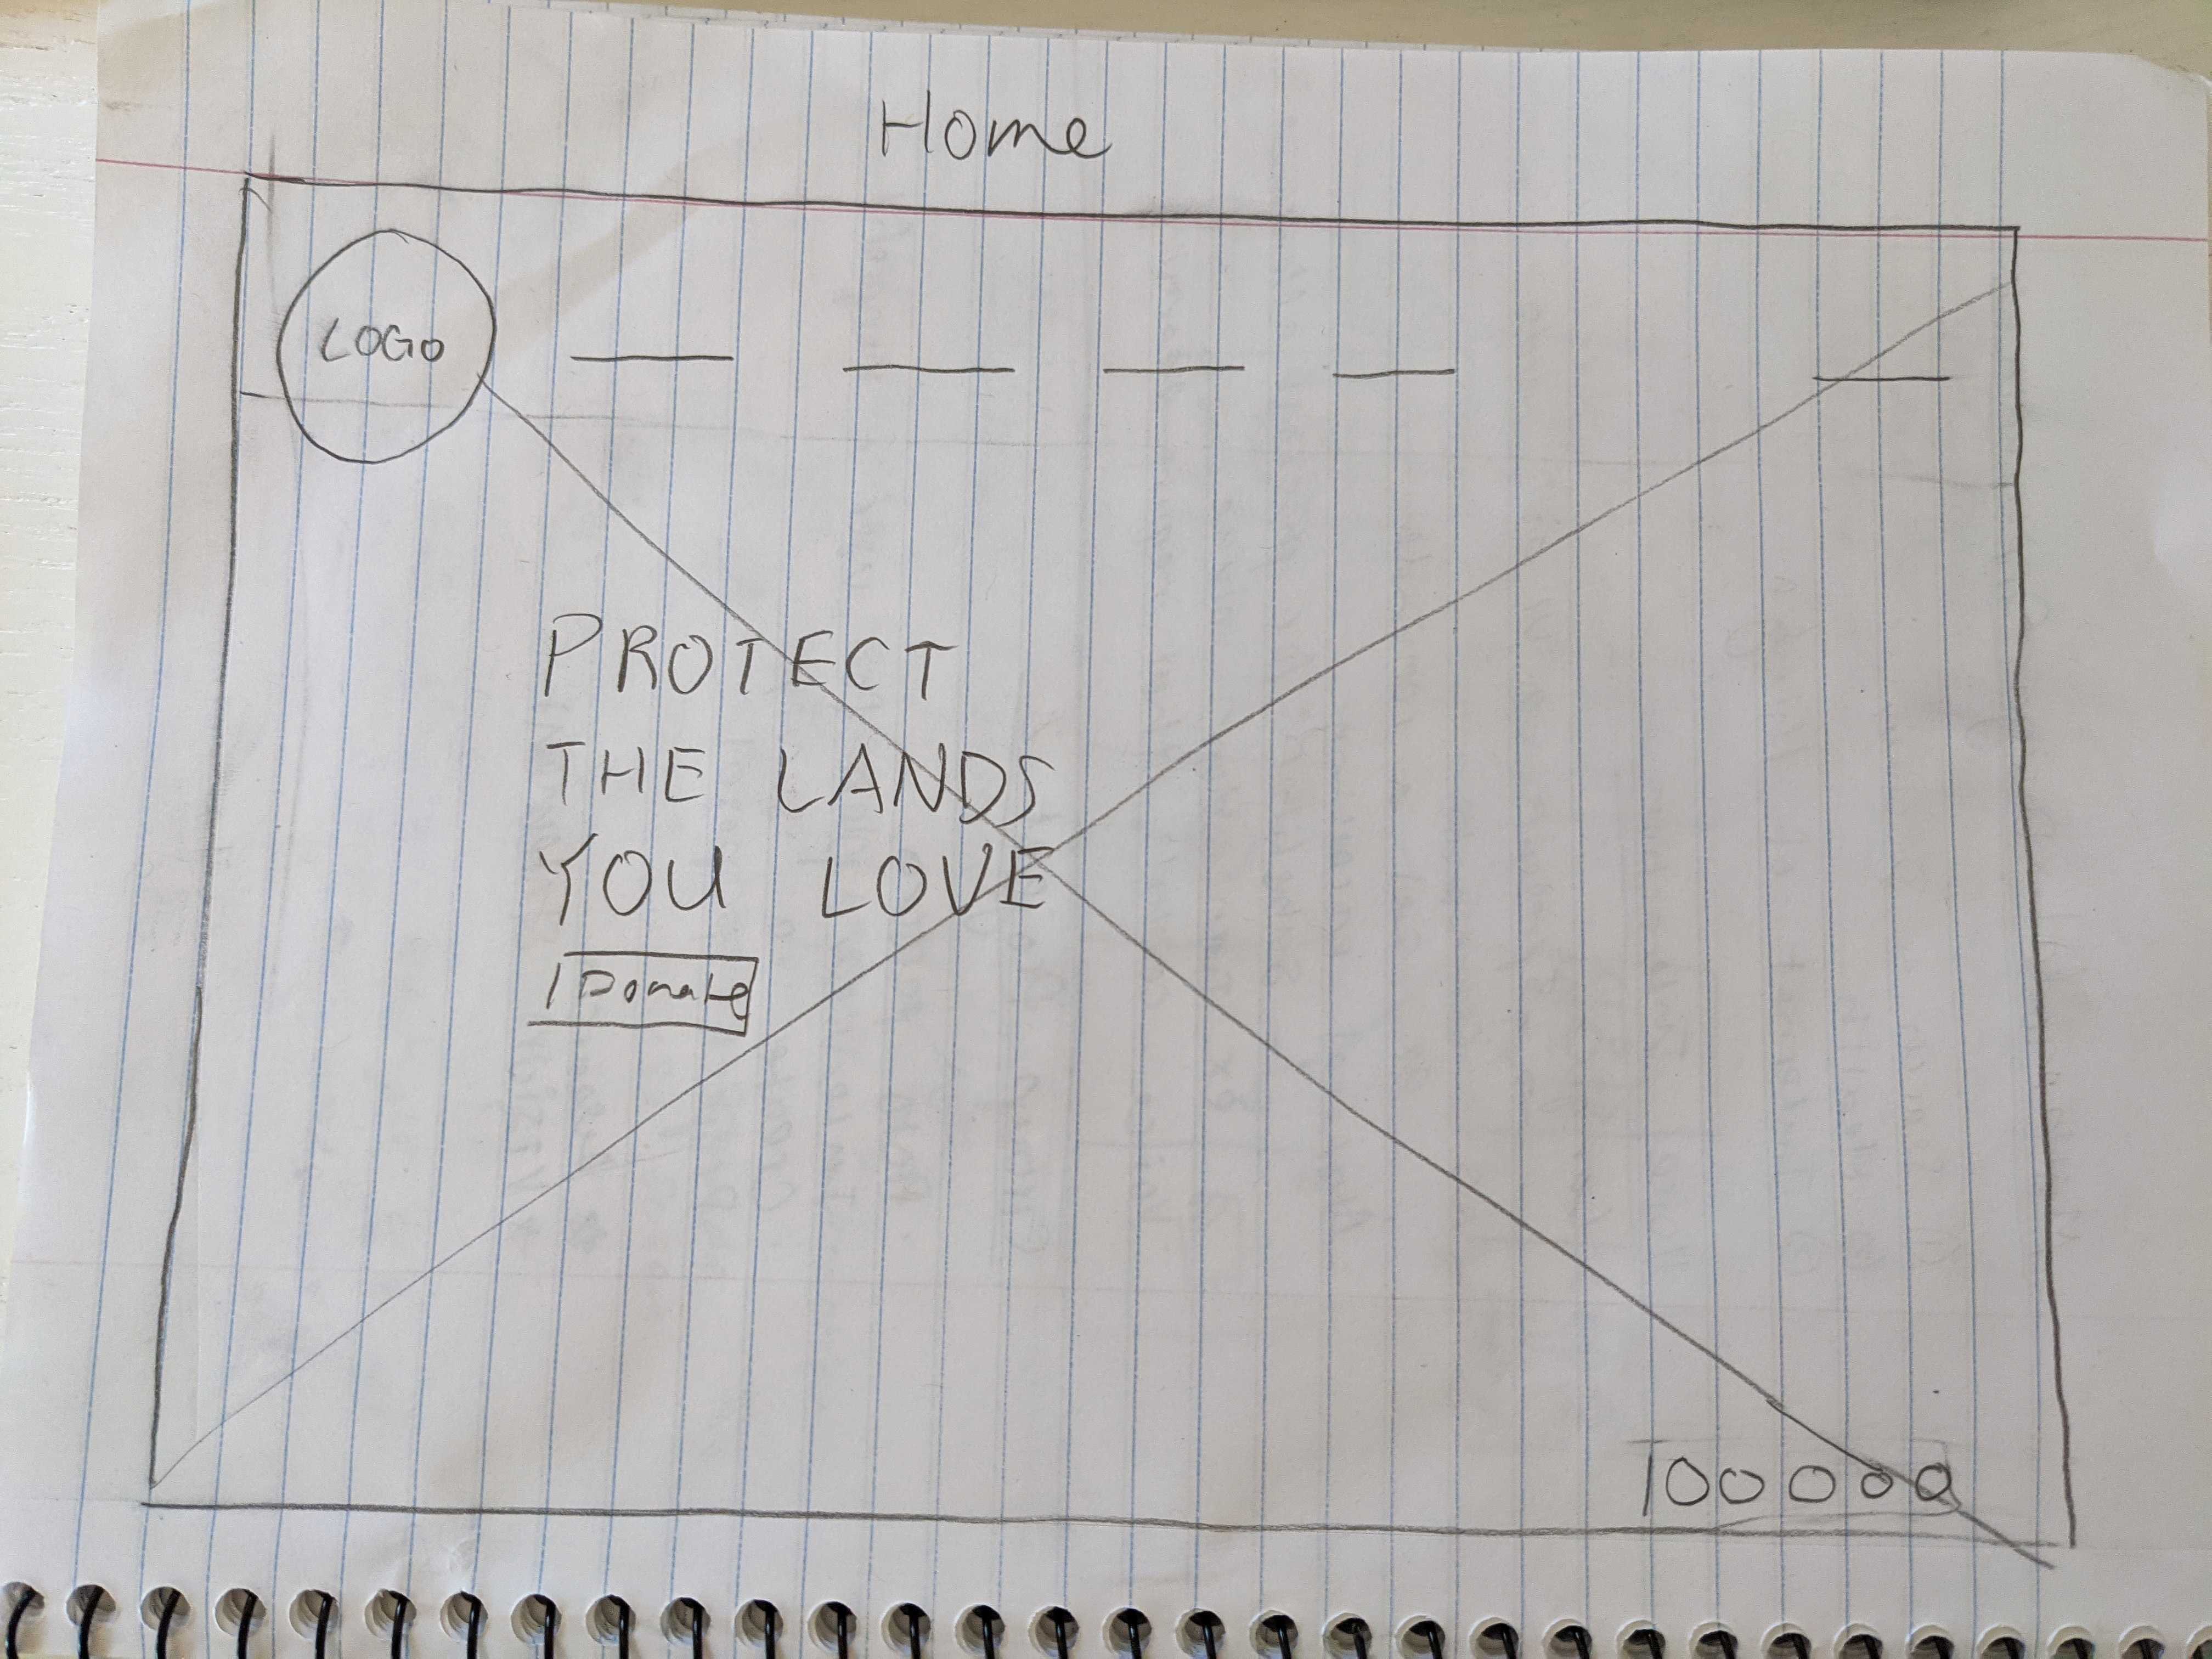 Home
LOGO
PROTECT
THE LANDS
YOU LOVE
Donate